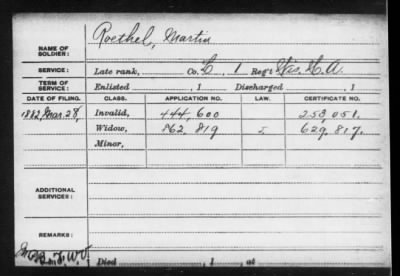 Roethel, Martin
NAME OF SOLDIER:
SERVICE: Late rank, Co. L, 1 Reg't Wis. H. A.
TERM OF SERVICE: Enlisted , 1 Discharged , 1
DATE OF FILING. CLASS. APPLICATION NO. LAW. CERTIFICATE NO.
1882, Mar. 28, Invalid, 444,600 253,051.
Widow, 862,819 629,817.
Minor,
ADDITIONAL SERVICES:
REMARKS:
Died , 1 , at